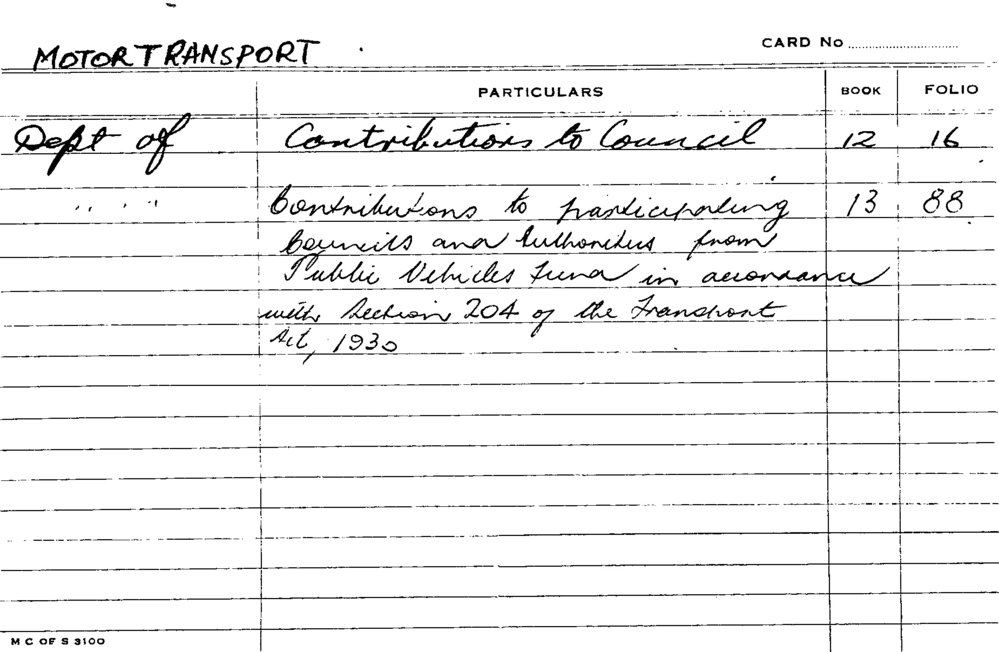 MOTOR TRANSPORT
CARD No
PARTICULARS BOOK FOLIO
Dept of Contributions to Council 12 16
" " " Contributions to participating 13 88
Councils and Authorities from
Public Vehicles Fund in accordance
with Section 204 of the Transport
Act, 1930
M C OF S 3100